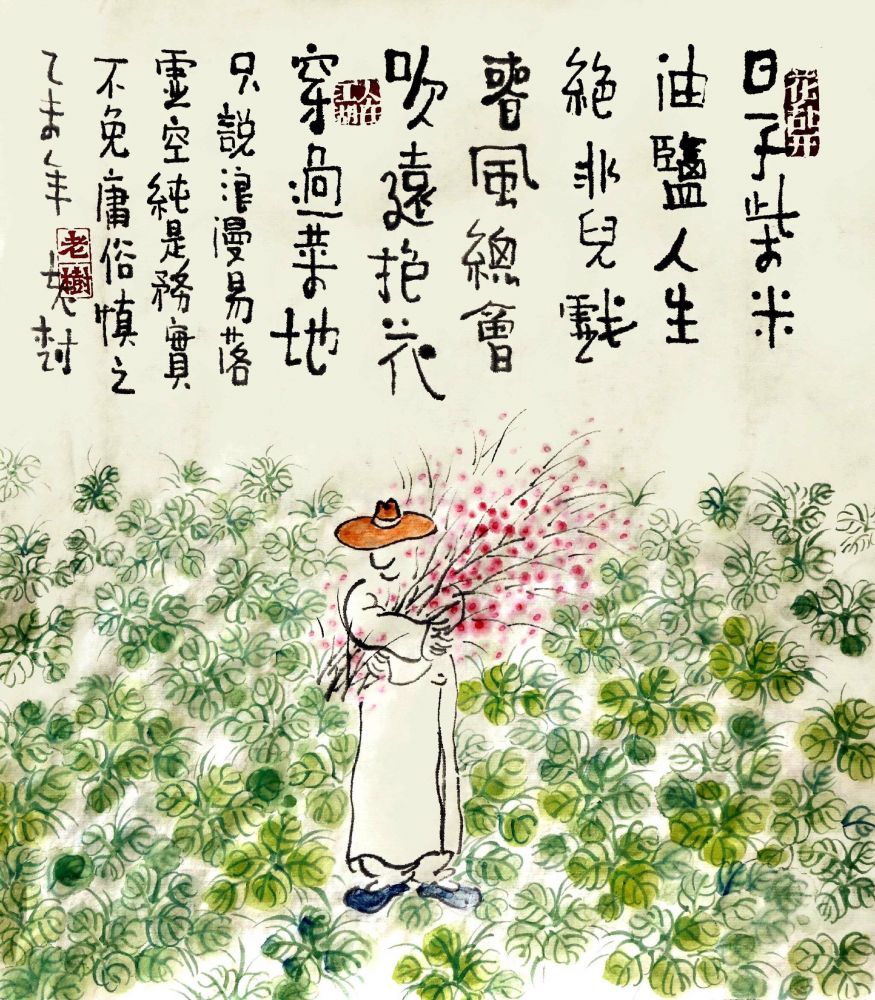 花乱开
日子柴米
油鹽人生
絕非兒戲
春風總會
吹遠抱花
人在江湖
穿過菜地
只說浪漫易落
虛空純是務實
不免庸俗慎之
乙未年老樹
老樹